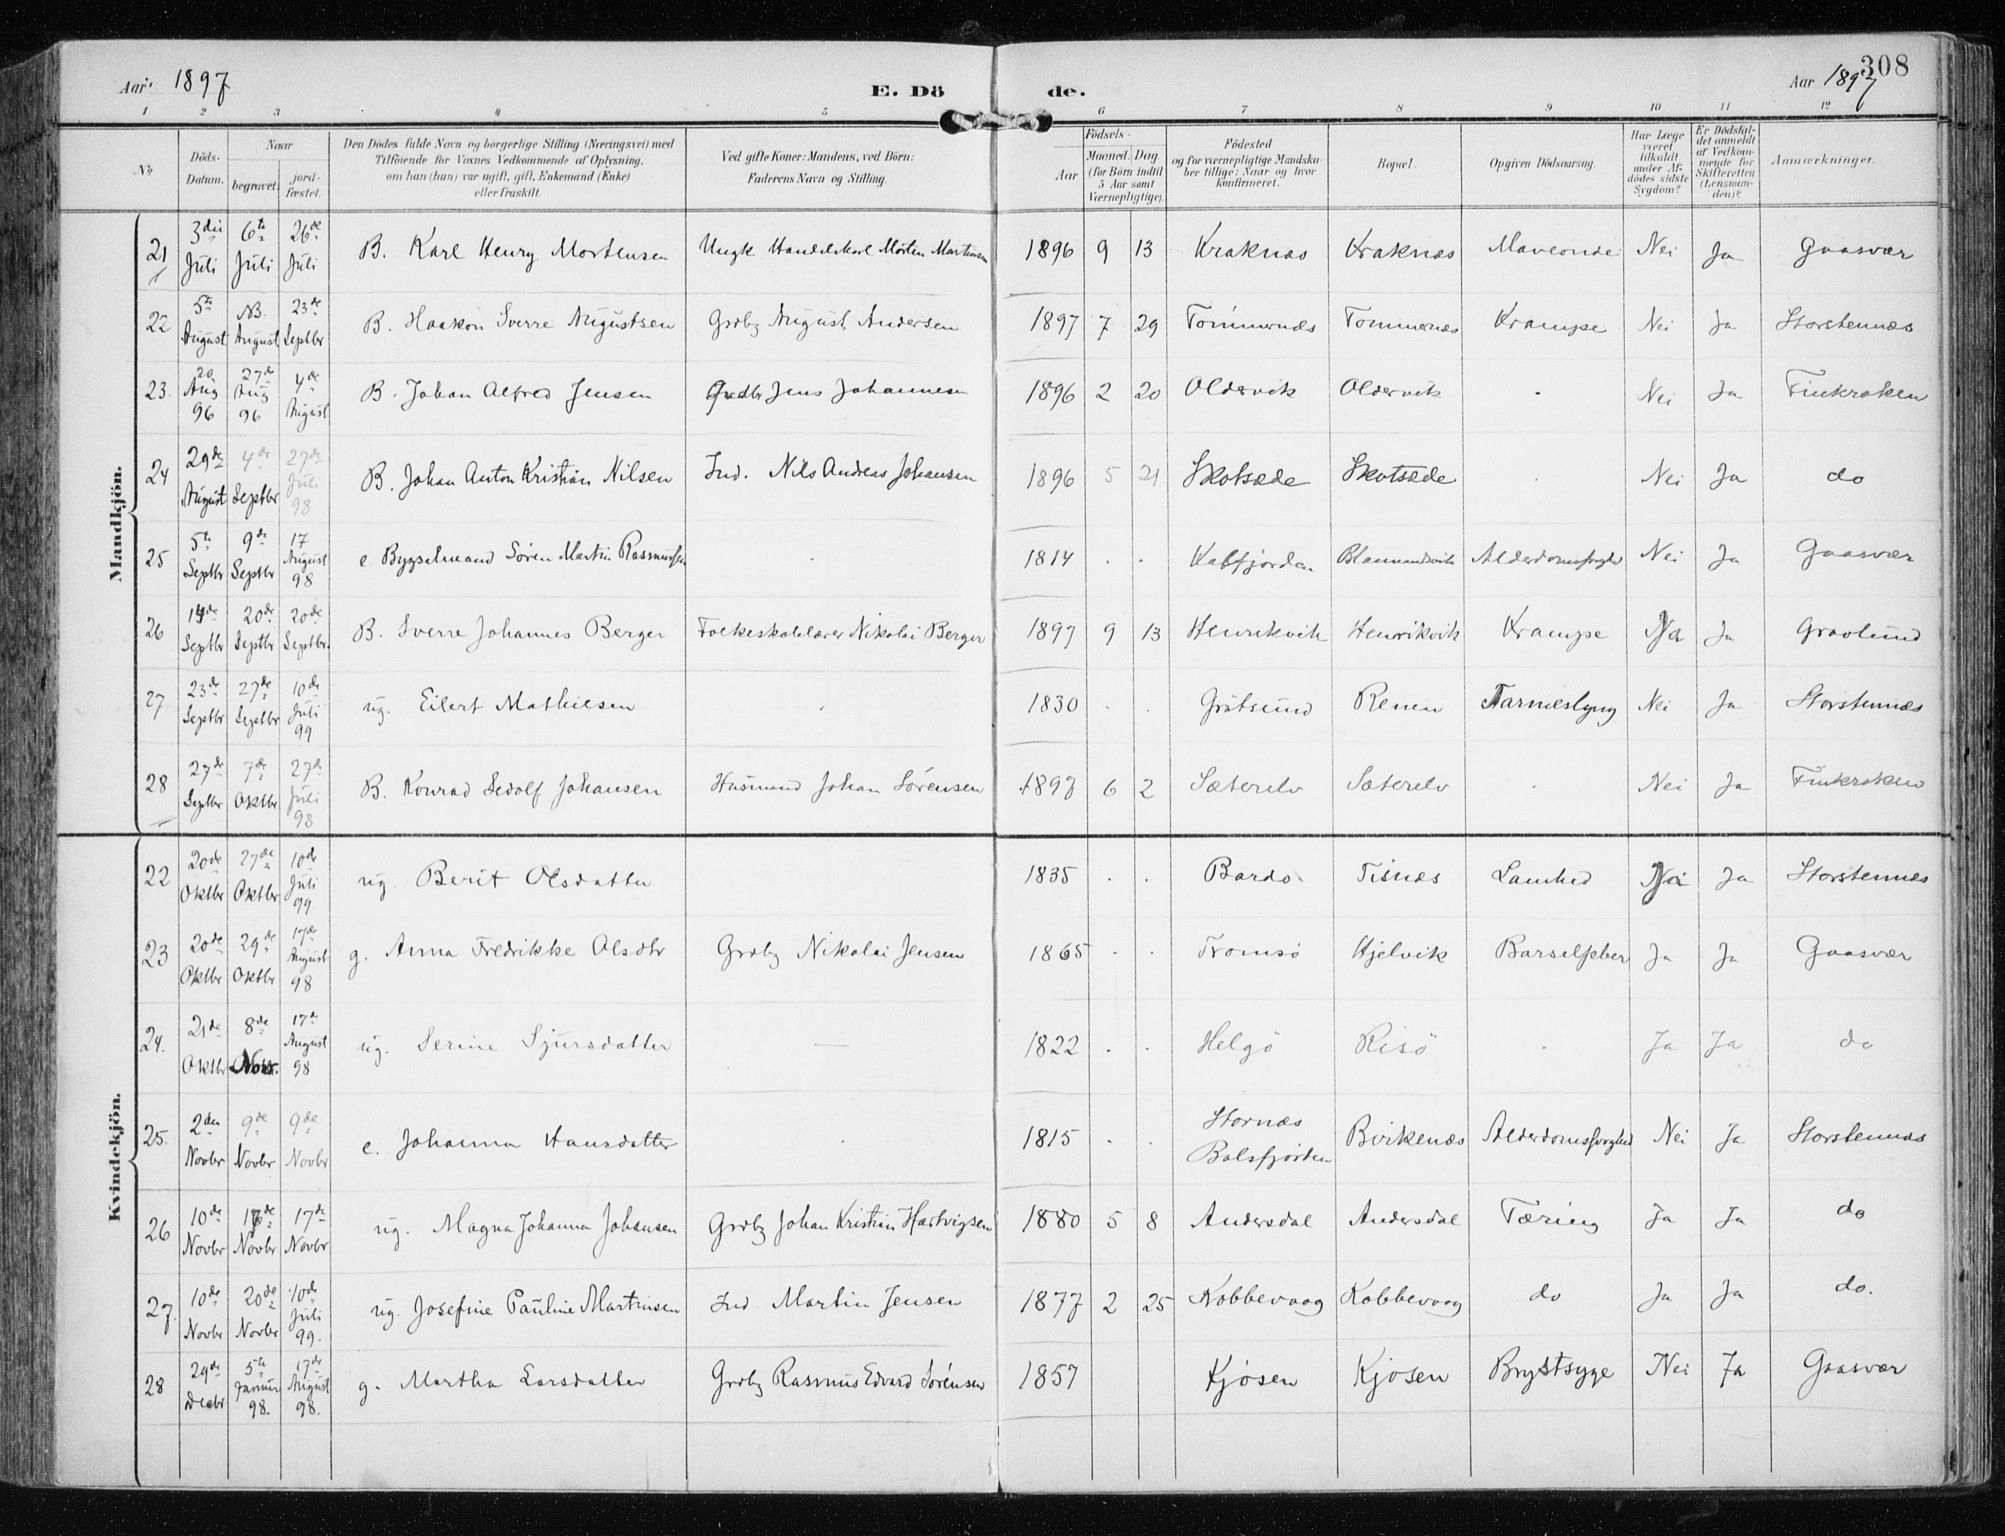 Aar 1897
E. Dö
de.
Aar 1897
308
1 2 3 4 5 6 7 8 9 10 11 12
No.
Döds-Datum.
Naar
begravet.
jord-fæstet.
Den Dödes fulde Navn og borgerlige Stilling (Næringsvei) med
Tilföiende for Voxnes Vedkommende af Oplysning,
om han (hun) var ugift, gift, Enkemand (Enke)
eller fraskilt.
Ved gifte Koner: Mandens, ved Börn:
Faderens Navn og Stilling.
Födsels-
Aar
Maaned. Dag.
(for Börn indtil
5 Aar samt
Værnepligtige).
Födested
og for værnepligtige Mandska-
ber tillige: Naar og hvor
konfirmeret.
Bopæl.
Opgiven Dödsaarsag.
Har Læge
været
tilkaldt
under Af-
dödes sidste
Sygdom?
Er Dödsfal-
det anmeldt
af Vedkom-
mende for
Skifteretten
(Lensman-
den)?
Anmærkninger.
Mandkjön.
21 3die Juli 6te Juli 26de Juli B. Karl Henry Mortensen Ungk Handelskarl Morten Martinsen 1896 9 13 Kraknæs Kraknæs Maveonde Nei Ja Gaasvær
22 5te August NB. August 23de Septbr B. Haakon Sverre Augustsen Grdbg August Andersen 1897 7 29 Tømmernæs Tommernæs Krampe Nei Ja Storstennæs
23. 20 Aug 96 27de Aug 96 4de August B. Johan Alfred Jensen Grdbr Jens Johannesen 1896 2 20 Oldervik Oldervik - Nei Ja Finkroken
24 29de August 4de Septbr 27de Juli 98 B. Johan Anton Kristian Nilsen Ind. Nils Andreas Johansen 1896 5 21 Skotsæde Skotsæde . Nei Ja do
25 5te Septbr 9de Septbr 17 August 98 e. Bygselmand Søren Martin Rasmussen . 1814 . . Kalfjorden Blaamandsvik Alderdomssvaghd Nei Ja Gaasvær
26 14de Septbr 20de Septbr 20de Septbr. B. Sverre Johannes Berger Folkeskolelærer Nikolai Berger 1897 9 13 Henrikvik Henrikvik Krampe Ja Ja Gravlund
27 23de Septbr 27de Septbr 10de Juli 99 ug. Eilert Mathiesen . 1830 . . Grötsund Renen Tarmeslyng Nei Ja Storstennæs
28 27de Septbr 7de Oktbr 27de Juli 98 B. Konrad Sedolf Johansen Husmand Johan Sørensen 1897 6 2 Sæterelv Sæterelv . Nei Ja Finkroken
Kvindekjön.
22 20de Oktbr 27de Oktbr 10de Juli 99 ug. Berit Olsdatter 1835 . . Bardo Tisnæs Lamhed Nei Ja Storstennæs
23 20de Oktbr 29de Oktbr 17de August 98 g. Anna Fredrikke Olsdtr Grdbg Nikolai Jensen 1865 . . Tromsö Kjelvik Barselfeber Ja Ja Gaasvær
24. 21de Oktbr 8de Novr. 17de August 98 ug. Serine Sjursdatter — 1822 . . Helgö Risö . Ja Ja do
25. 2den Novbr 9de Novbr 9de Novbr e. Johanna Hansdatter . 1815 . . Stornæs Balsfjorden Birkenæs Alderdomssvaghed Nei Ja Storstennæs
26 10de Novbr 17de Novbr 17de Novbr ug. Magna Johanna Johansen Grdbg Johan Kristian Hartvigsen 1880 5 8 Andersdal Andersdal Tæring Ja Ja do
27. 10de Novbr 20de Novbr 10de Juli 99. ug. Josefine Pauline Martinsen Ind Martin Jensen 1877 2 25 Kobbevaag Kobbevaag do Ja Ja do.
28 29de Decbr 5te Januar 98. 17de August 98. g. Martha Larsdatter Grdbg Rasmus Edvard Sörensen 1857 Kjösen Kjösen Brystsyge Nei Ja Gaasvær